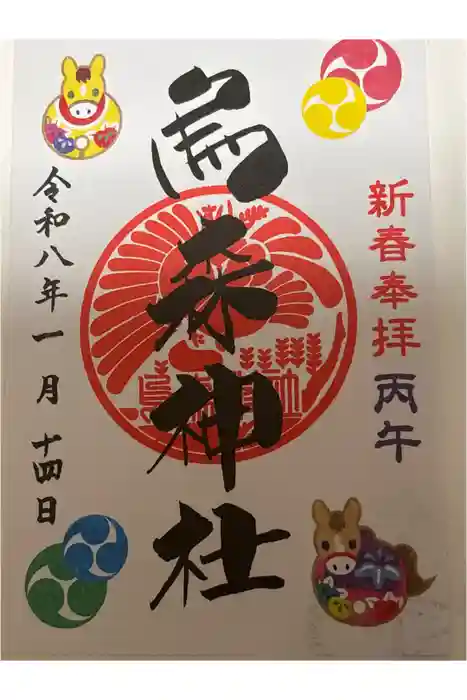 新春奉拝 丙午
烏森神社
令和八年一月十四日